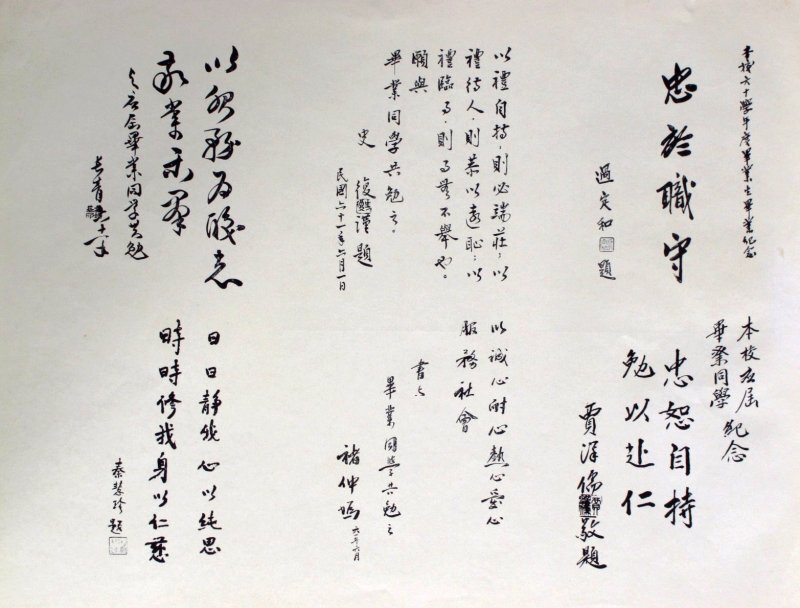 本城六十學年度畢業生畢業紀念
忠於職守
過定和題
以禮自持，則必端莊；以
禮待人，則恭以遠恥；以
禮臨事，則事無不舉也。
願與
畢業同學共勉之。
史復謹題
民國六十一年六月一日
以服務為職志
敬業樂羣
應屆畢業同學共勉
本校應屆
畢業同學紀念
忠恕自持
勉以赴仁
賈澤儒敬題
以誠心耐心熱心愛心
服務社會
書與
畢業同學共勉之
褚仲
六一年六月
日日靜我心以純思
時時修我身以仁慈
秦慧珍題